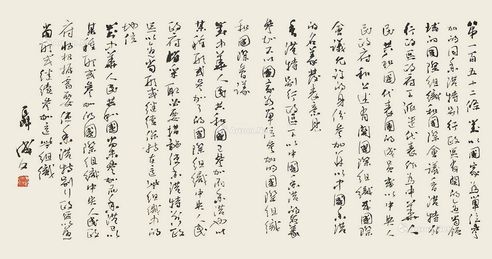 第一百五十二條 對以國家為單位參
加的同香港特别行政區有關的適當領
域的國際組織和國際會議香港特别
行政區政府可派遣代表作為中華人
民共和國代表團的成員或以中央人
民政府和上述有關國際組織或國際
會議允許的身份參加并以中國香港
的名義發表意見
香港特别行政區可以中國香港的名義
參加不以國家為單位參加的國際組織
和國際會議
對中華人民共和國已參加而香港也以
某種形式參加了的國際組織中央人民
政府將采取必要措施使香港特别行政
區以適當形式繼續保持在這些組織中的
地位
對中華人民共和國尚未參加而香港已以
某種形式參加的國際組織中央人民政
府將根據需要使香港特别行政區以適
當形式繼續參加這些組織